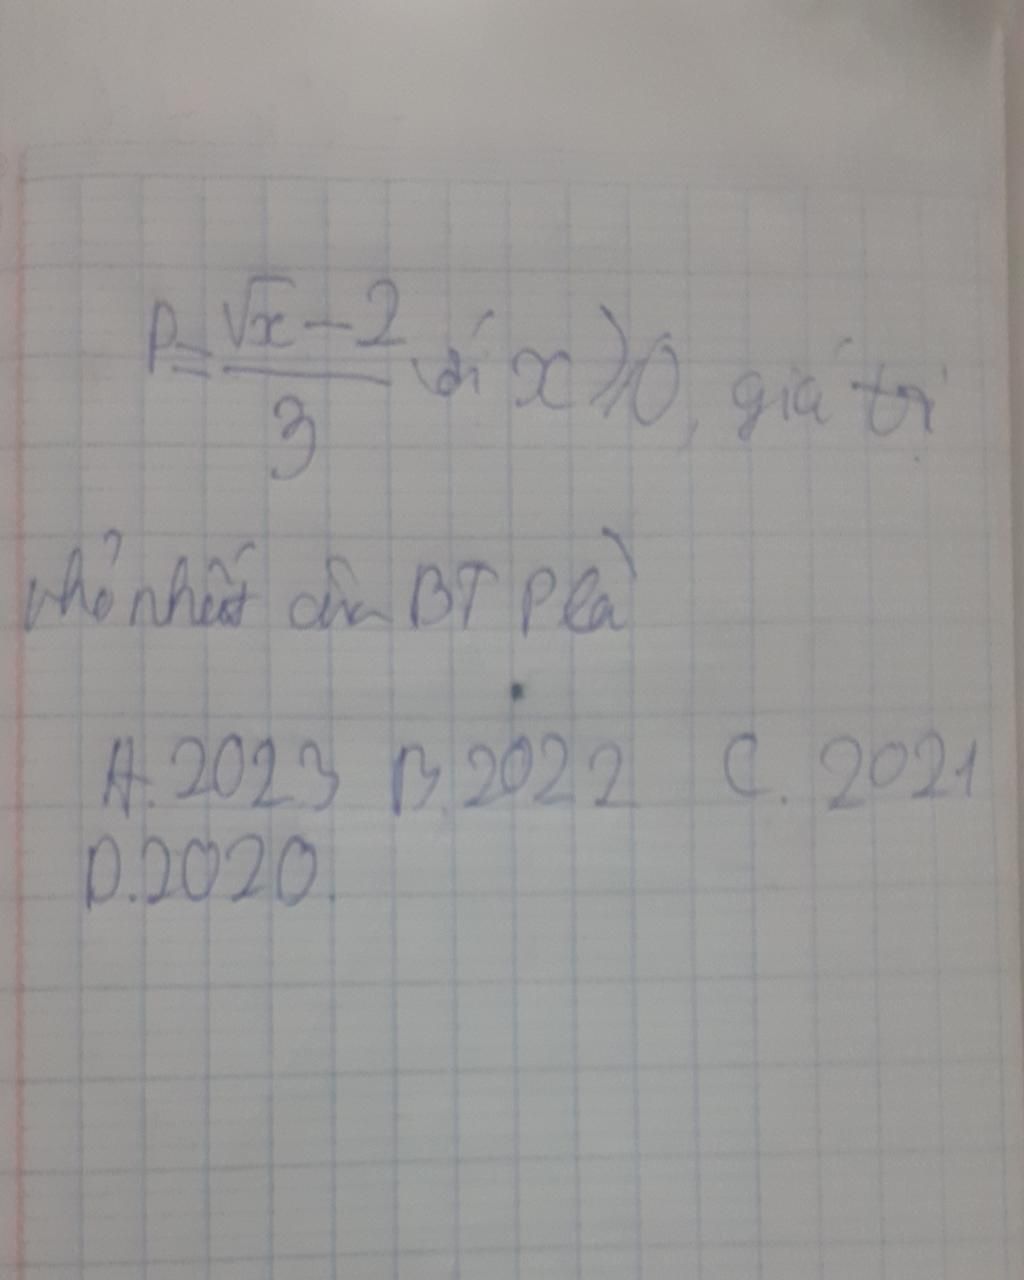 P = \frac{\sqrt{x} - 2}{3} với x ≥ 0, giá trị
nhỏ nhất của BT P là
A. 2023 B. 2022 C. 2021
D. 2020.